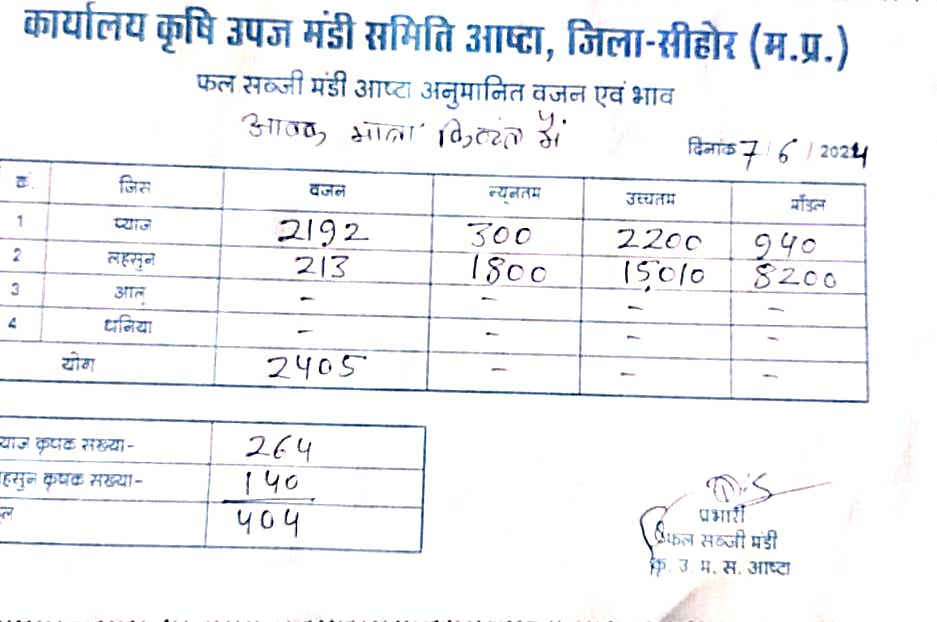 कार्यालय कृषि उपज मंडी समिति आष्टा, जिला-सीहोर (म.प्र.)
फल सब्जी मंडी आष्टा अनुमानित वजन एवं भाव
आवक मात्रा क्विंटल में
दिनांक 7/6/2024
क्रं. जिंस वजन न्यूनतम उच्चतम मॉडल
1 प्याज 2192 300 2200 940
2 लहसुन 213 1800 15,010 8200
3 आलू - - - -
4 धनिया - - - -
योग 2405 - - -
याज कृषक संख्या- 264
हसुन कृषक संख्या- 140
ल 404
प्रभारी
फल सब्जी मंडी
कृ. उ. म. स. आष्टा